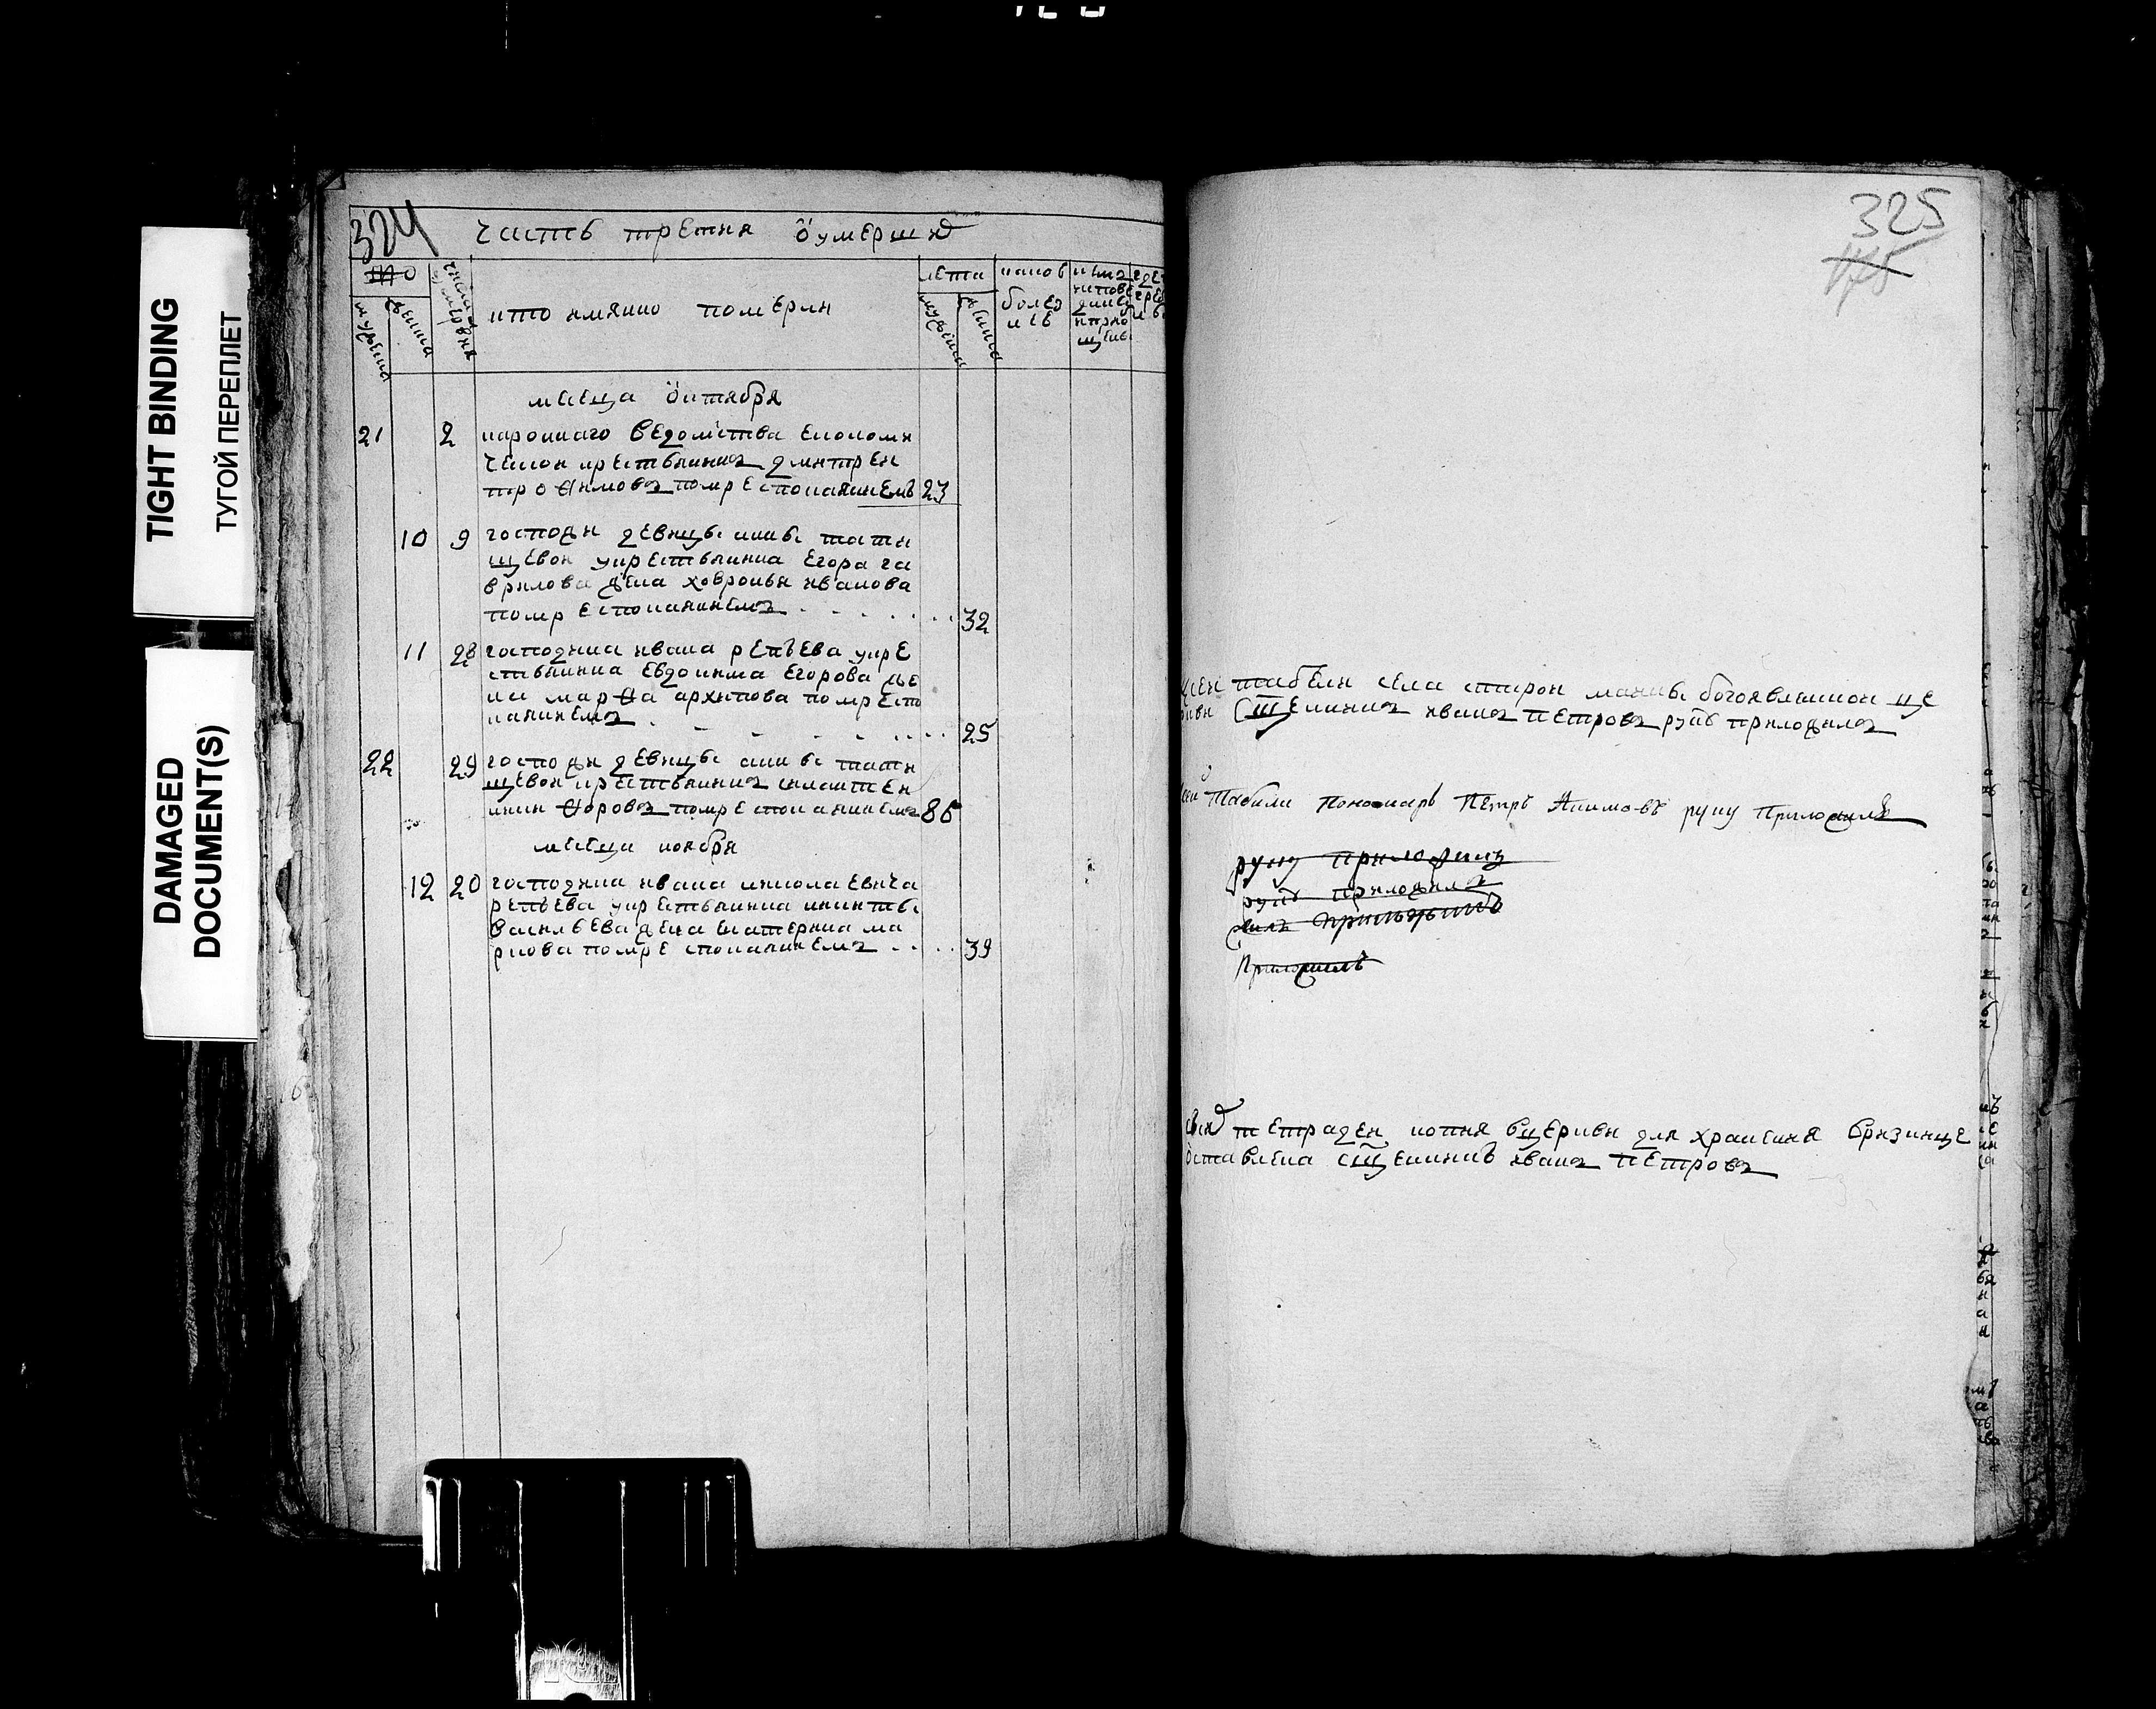 TIGHT BINDING
ТУГОЙ ПЕРЕПЛЕТ
DAMAGED
DOCUMENT(S)
324
часть третия о умерших
кто имянно померли
лета
какою
болез
нею
месеца октября
21 2 каронаго ведомства економи
ческои крестьянинъ дмитреи
троѳимовъ помре с покаяниемъ 23
10 9 госпожи девицы анны тати
щевои у крестьянина егора га
врилова жена ховронья иванова
помре с покаяниемъ 32
11 28 господина ивана репъева у кре
стьянина евдокима егорова же
на марѳа архипова помре с по
каяниемъ 25
22 29 госпожи девицы анны тати
щевои крестьянинъ
ѳоровъ помре с покаяниемъ 86
месеца ноября
12 20 господина ивана николаевича
репьева у крестьянина никиты
васильева жена екатерина ма
ркова помре с покаяниемъ 39
325
175
табели села старои маины богоявленскои це
ркви Сщенникъ иванъ петровъ руку приложилъ
табели Пономарь Петръ Акимовъ руку Приложилъ
руку приложилъ
руку приложилъ
приложилъ
Приложилъ
тетрадеи копия в церкви для хранения в ризнице
оставлена сщенникъ иванъ петровъ